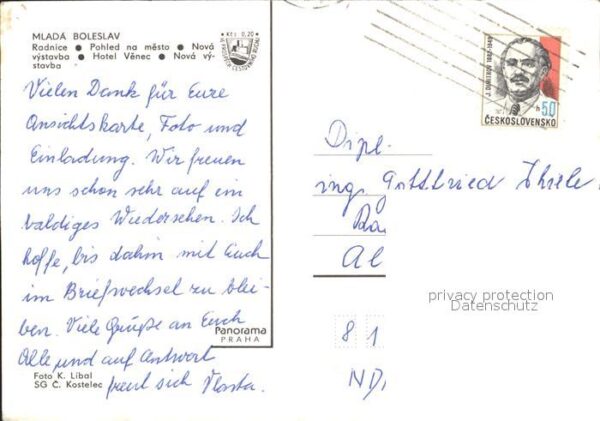 MLADÁ BOLESLAV
Radnice ● Pohled na město ● Nová
výstavba ● Hotel Věnec ● Nová vý-
stavba
Kčs 0,20
Vielen Dank für Eure
Ansichtskarte, Foto und
Einladung. Wir freuen
uns schon sehr auf ein
baldiges Wiedersehen. Ich
hoffe, bis dahin mit Euch
im Briefwechsel zu blei-
ben. Viele Grüße an Euch
Alle und auf Antwort
freut sich Vlasta.
Panorama
PRAHA
Foto K. Líbal
SG Č. Kostelec
J. DIMITROV 1882-1949
50 h
ČESKOSLOVENSKO
Dipl.
ing. Gottfried Thiele
Al
privacy protection
Datenschutz
8 1